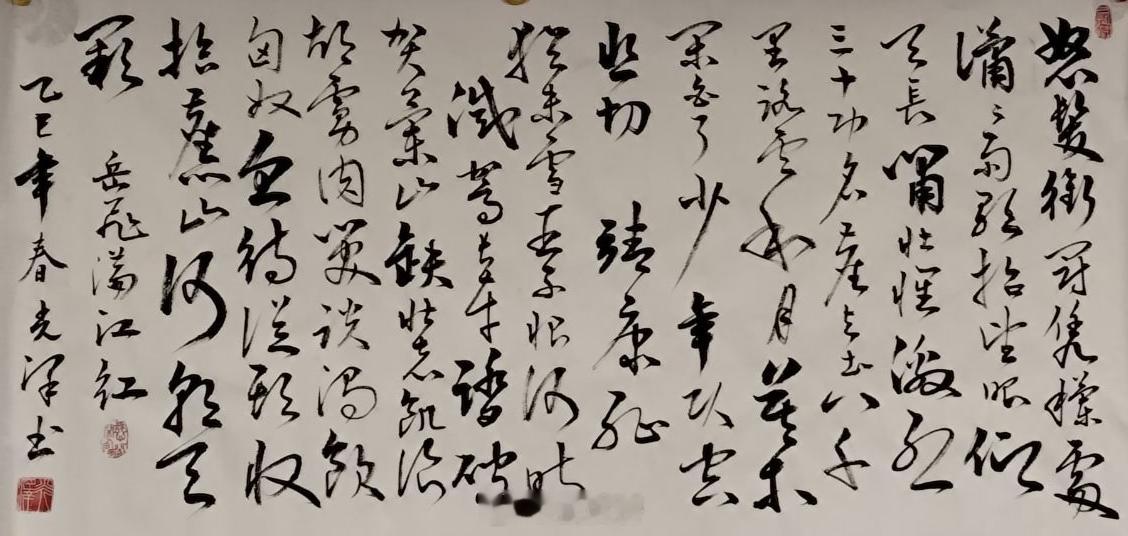 怒髮衝冠憑欄處
瀟々雨歇抬望眼仰
天長嘯壯懷激烈
三十功名塵與土八千
里路雲和月莫等
閑白了少年頭空
悲切 靖康恥
猶未雪臣子恨何時
滅駕長車踏破
賀蘭山缺壯志飢餐
胡虜肉笑談渴飲
匈奴血待從頭收
拾舊山河朝天
闕
岳飛滿江紅
乙巳年春光泽书